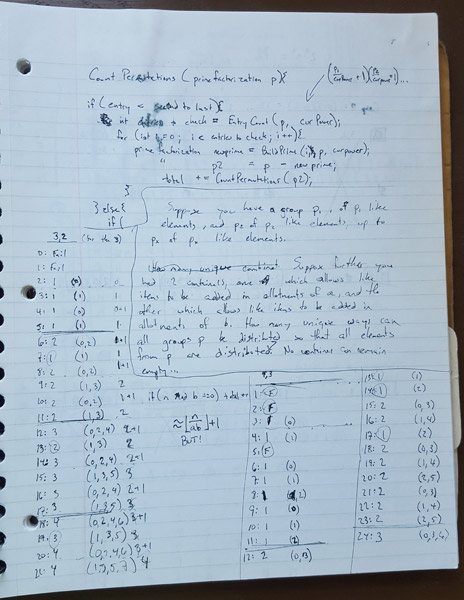 Count Permutations (prime factorization p){
if (entry < second to last){
int entries to check = EntryCount (p, curPower);
for (int i=0; i < entries to check; i++){
prime factorization newprime = BuildPrime(i, p, curpower);
" p2 = p - new prime;
total += CountPermutations (p2);
}
} else {
if (
Suppose you have a group p, of p1 like
elements, and p2 of p2 like elements, up to
pn of pn like elements.
How many unique combinat Suppose further you
had 2 containers, one of which allows like
items to be added in allotments of a, and the
other which allows like items to be added in
allotments of b. How many unique ways can
all groups p be distributed so that all elements
from p are distributed? No container can remain
empty...
3,2 (for the 3)
0: Fail
1: Fail
2: 1 (0) 0
3: 1 (1) 1
4: 1 (0) 0+1
5: 1 (1) 1
6: 2 (0,2) 1+1
7: 1 (1) 1
8: 2 (0,2) 1+1
9: 2 (1,3) 2
10: 2 (0,2) 1+1
11: 2 (1,3) 2
12: 3 (0,2,4) 2+1
13: 2 (1,3) 2
14: 3 (0,2,4) 2+1
15: 3 (1,3,5) 3
16: 3 (0,2,4) 2+1
17: 3 (1,3,5) 3
18: 4 (0,2,4,6) 3+1
19: 3 (1,3,5) 3
20: 4 (0,2,4,6) 3+1
21: 4 (1,3,5,7) 4
if (n mod b == 0) total++
≈ [n/ab] + 1
BUT!
4,3
1: F
2: F
3: 1 (0)
4: 1 (1)
5: F
6: 1 (0)
7: 1 (1)
8: 1 (2)
9: 1 (0)
10: 1 (1)
11: 1 (2)
12: 2 (0,3)
13: 1 (1)
14: 1 (2)
15: 2 (0,3)
16: 2 (1,4)
17: 1 (2)
18: 2 (0,3)
19: 2 (1,4)
20: 2 (2,5)
21: 2 (0,3)
22: 2 (1,4)
23: 2 (2,5)
24: 3